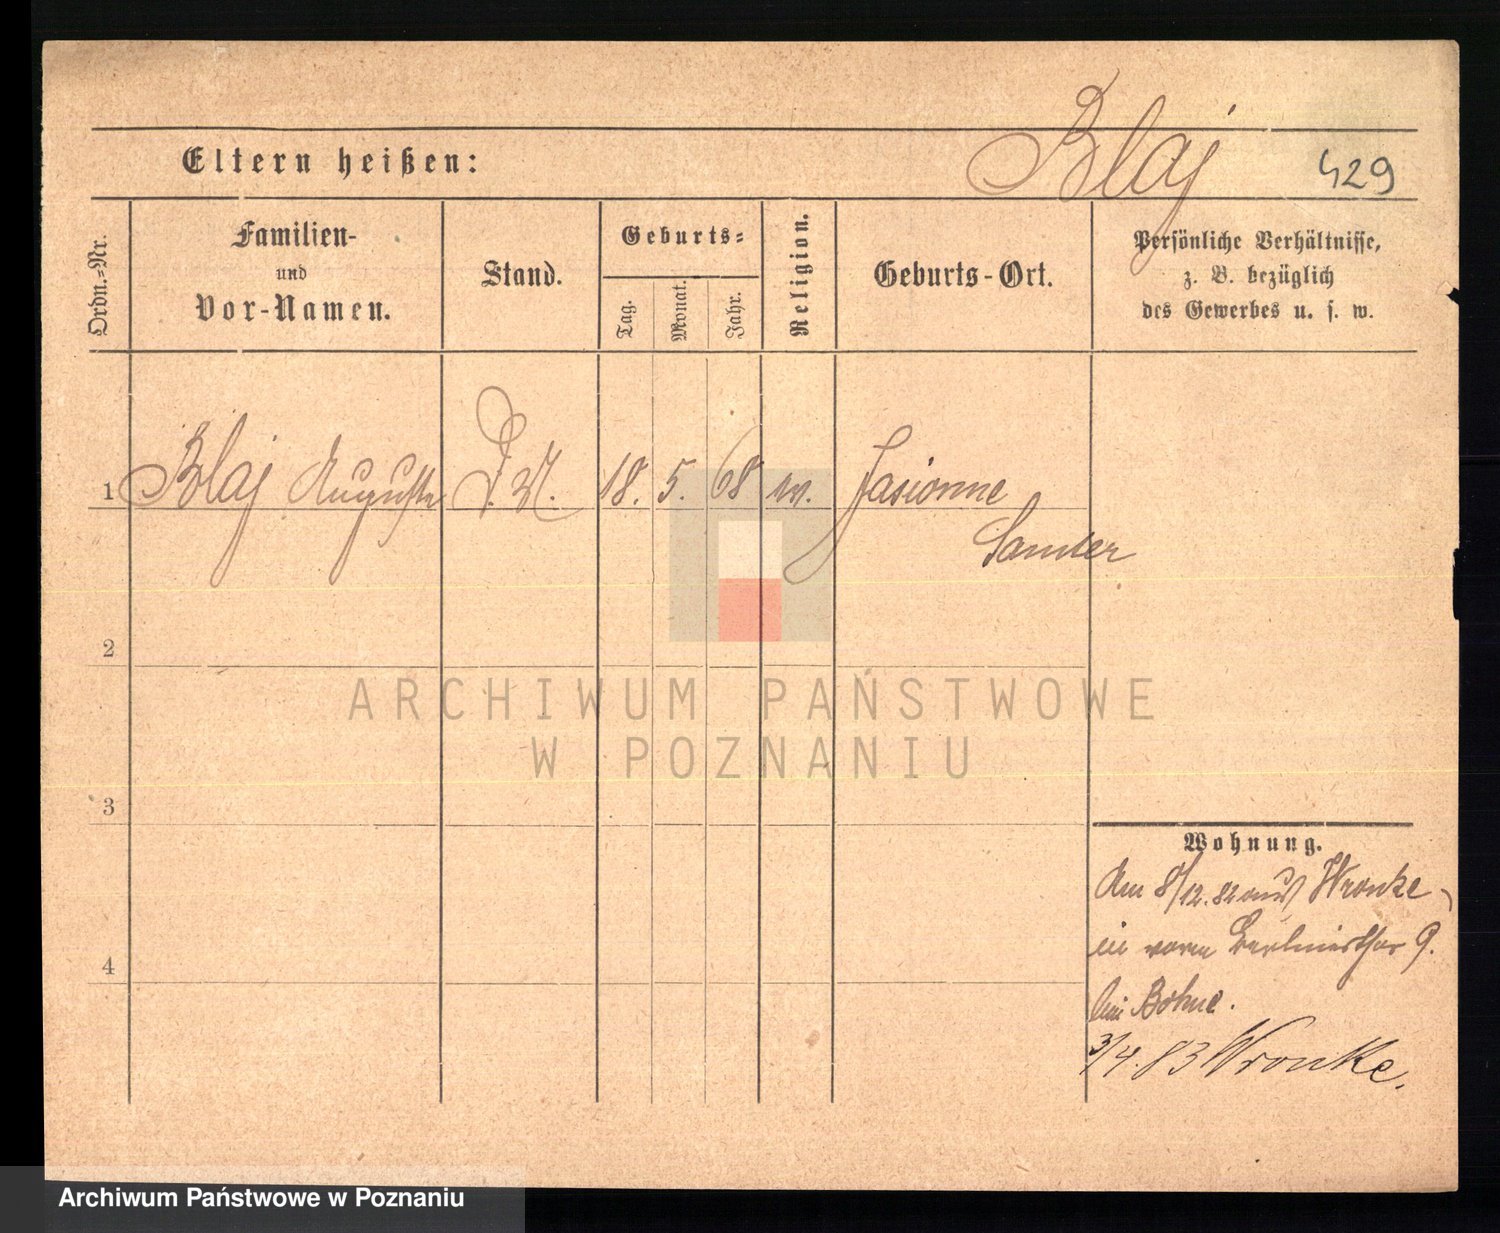 Blaj
Eltern heißen:
429
Ordn.-Nr.
Familien-
und
Vor-Namen.
Stand.
Geburts-
Tag.
Monat.
Jahr.
Religion.
Geburts-Ort.
Persönliche Verhältnisse,
z. B. bezüglich
des Gewerbes u. s. w.
1 Blaj Auguste D. M. 18. 5. 68 Jasionne
Samter
2
ARCHIWUM PAŃSTWOWE
W POZNANIU
3
4
Wohnung.
Am 8/12.82 aus Wronke
vorm Berlinerthor 9.
bei Böhne.
3/4.83 Wronke.
Archiwum Państwowe w Poznaniu